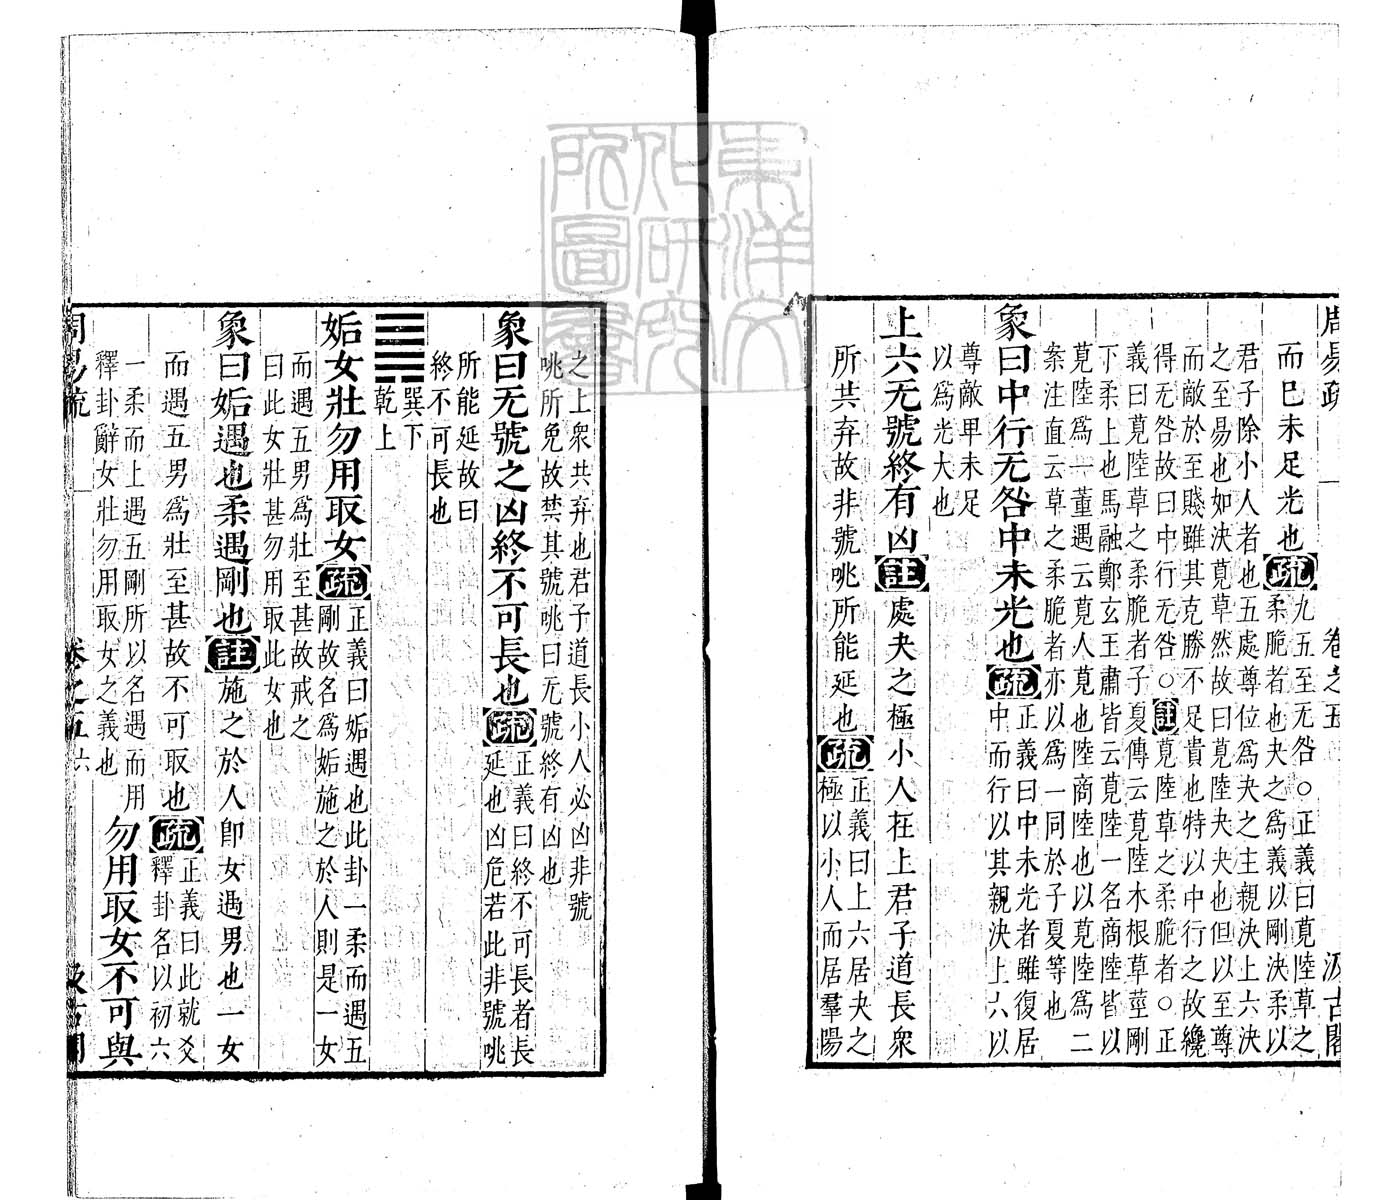 周易疏 卷之五 汲古閣
而已未足光也疏九五至无咎○正義曰莧陸草之
柔脆者也夬之爲義以剛決柔以
君子除小人者也五處尊位爲夬之主親決上六決
之至易也如決莧草然故曰莧陸夬夬也但以至尊
而敵於至賤雖其克勝不足貴也特以中行之故纔
得无咎故曰中行无咎○註莧陸草之柔脆者○正
義曰莧陸草之柔脆者子夏傳云莧陸木根草莖剛
下柔上也馬融鄭玄王肅皆云莧陸一名商陸皆以
莧陸爲一董遇云莧人莧也陸商陸也以莧陸爲二
案注直云草之柔脆者亦以爲一同於子夏等也
象曰中行无咎中未光也疏正義曰中未光者雖復居
中而行以其親決上六以
尊敵卑未足
以爲光大也
上六无號終有凶註處夬之極小人在上君子道長衆
所共弃故非號咷所能延也疏正義曰上六居夬之
極以小人而居羣陽
之上衆共弃也君子道長小人必凶非號
咷所免故禁其號咷曰无號終有凶也
象曰无號之凶終不可長也疏正義曰終不可長者長
延也凶危若此非號咷
所能延故曰
終不可長也
巽下
乾上
姤女壯勿用取女疏正義曰姤遇也此卦一柔而遇五
剛故名爲姤施之於人則是一女
而遇五男爲壯至甚故戒之
曰此女壯甚勿用取此女也
彖曰姤遇也柔遇剛也註施之於人卽女遇男也一女
而遇五男爲壯至甚故不可取也疏正義曰此就爻
釋卦名以初六
一柔而上遇五剛所以名遇而用
釋卦辭女壯勿用取女之義也
勿用取女不可與
周易疏 卷之五 六 汲古閣
東洋文化研究所圖書